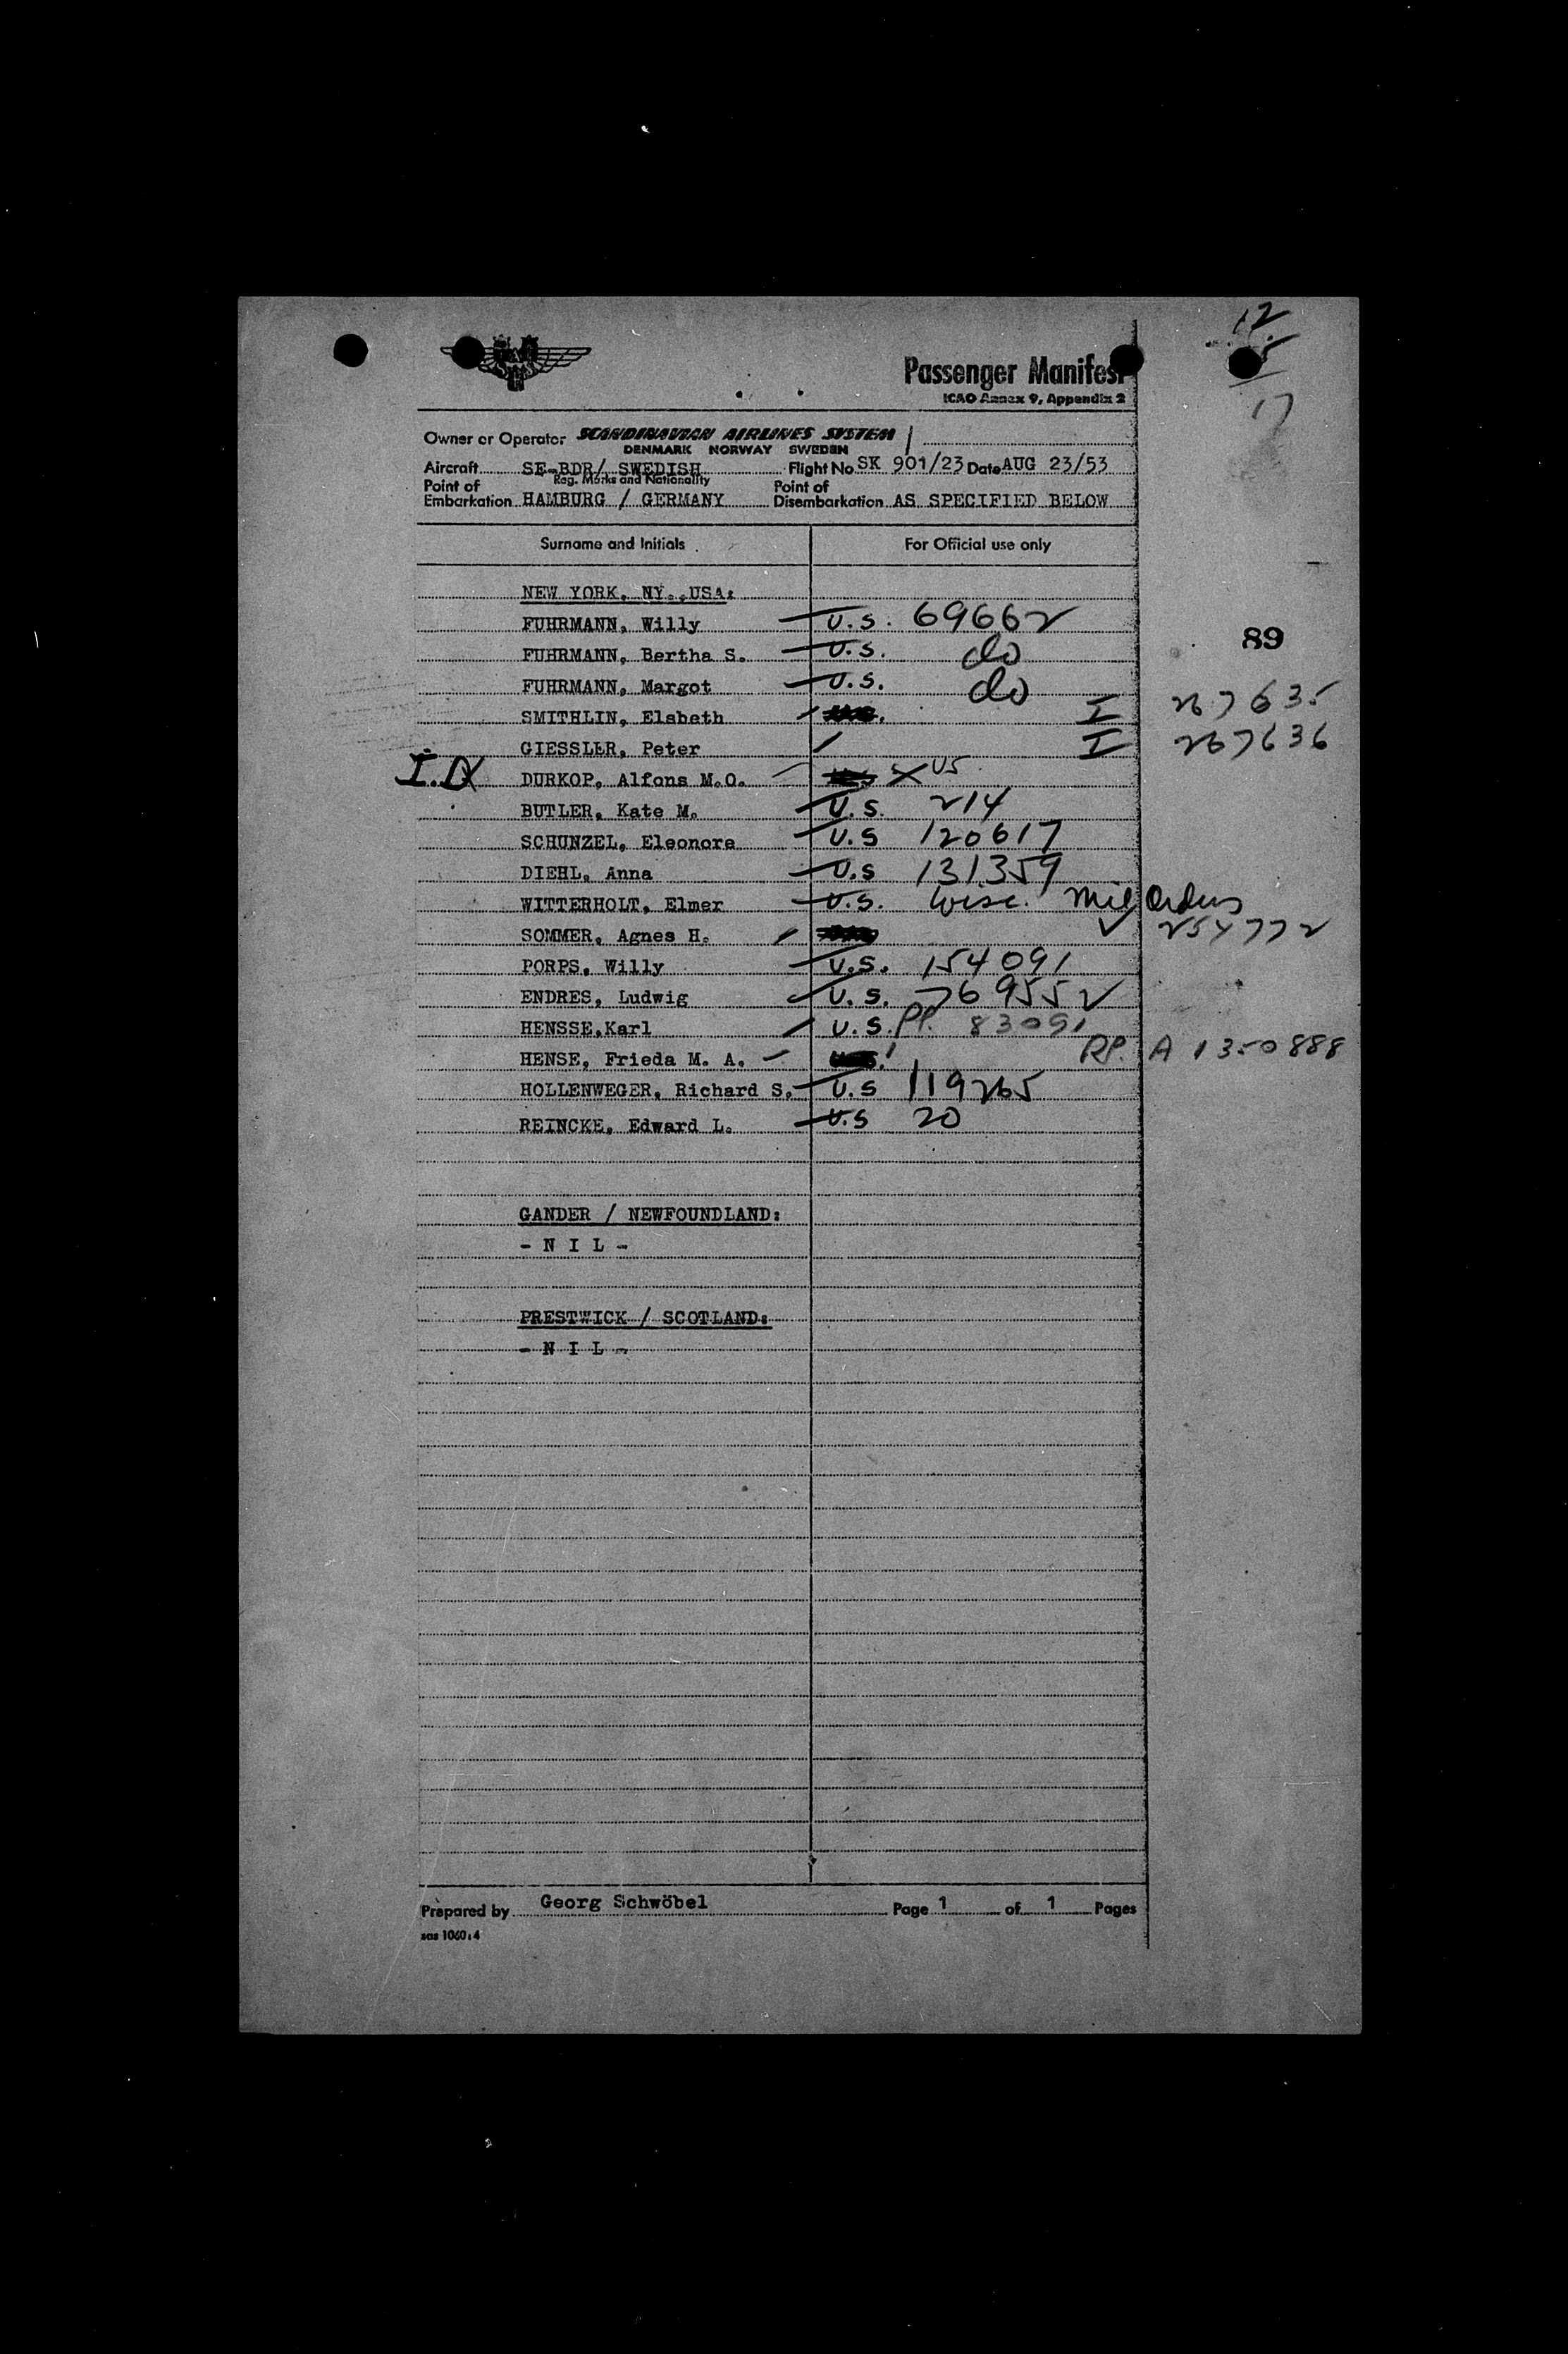 12
5
17
Passenger Manifest
ICAO Annex 9, Appendix 2
Owner or Operator SCANDINAVIAN AIRLINES SYSTEM
DENMARK NORWAY SWEDEN
Aircraft SE-BDR/ SWEDISH Flight No SK 901/23 Date AUG 23/53
Reg. Marks and Nationality
Point of Embarkation HAMBURG / GERMANY Point of Disembarkation AS SPECIFIED BELOW
Surname and Initials For Official use only
NEW YORK, NY.,USA:
FUHRMANN, Willy U.S. 69662
89
FUHRMANN, Bertha S. U.S. do
FUHRMANN, Margot U.S. do
SMITHLIN, Elsbeth I 267635
GIESSLER, Peter I 267636
DURKOP, Alfons M.O. X US
BUTLER, Kate M. U.S. 214
SCHUNZEL, Eleonore U.S 120617
DIEHL, Anna U.S 131359
WITTERHOLT, Elmer U.S. Mil Orders
SOMMER, Agnes H. 254772
PORPS, Willy U.S. 154091
ENDRES, Ludwig U.S. 769552
HENSSE,Karl U.S. PP. 83091
HENSE, Frieda M. A. RP. A 1350888
HOLLENWEGER, Richard S. U.S 119265
REINCKE, Edward L. U.S 20
GANDER / NEWFOUNDLAND:
- N I L -
PRESTWICK / SCOTLAND:
- N I L -
Prepared by Georg Schwöbel Page 1 of 1 Pages
sas 1060:4